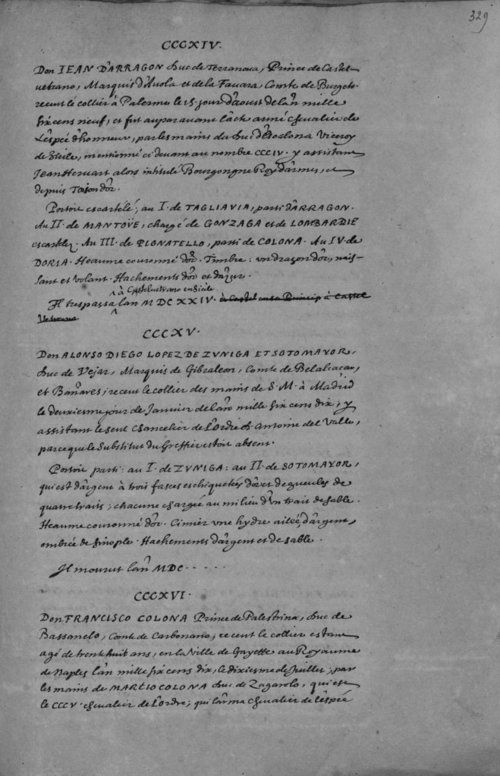 329
CCCXIV.
Don IEAN D'ARRAGON Duc de Terranoua, Prince de Castel-
uetrano, Marquis d'Auola et de la Fauara, Comte de Burgeto
receut le collier à Palermo le 15 jour d'aoust de l'an mille
six cens neuf, et fut auparauant l'acte armé chevalier de
l'espée d'honneur, par les mains du Duc d'Escalona Viceroy
de Sicile, mentionné cy deuant au nombre CCCIV. y assistant
Jean Heruart alors intitulé Bourgongne Roy d'armes, et
depuis Toison d'or.
Portoit escartelé, au I. de TAGLIAVIA, parti d'ARRAGON.
Au II. de MANTOÜE, chargé de GONZAGA et de LOMBARDIE
escartelez. Au III. de PIGNATELLO, parti de COLONA. Au IV de
DORIA. Heaume couronné d'or. Timbre: un dragon d'or, nais-
sant et volant. Hachements d'or et d'azur.
à Castelvetrano en Sicile
Il trespassa l'an MDCXXIV.
CCCXV.
Don ALONSO DIEGO LOPEZ DE ZVNIGA ET SOTOMAYOR,
Duc de Vejar, Marquis de Gibraleon, Comte de Belalcaçar,
et Bañares, receut le collier des mains de S. M. à Madrid
le deuxieme jour de Janvier de l'an mille six cens dix, y
assistant le seul Chancelier de l'ordre et Antoine del Valle,
parce que le Substitut du Greffier estoit absent.
Portoit parti: au I. de ZVNIGA: au II. de SOTOMAYOR,
qui est d'argent à trois fasces eschiquetés d'or et de gueules de
quatre traits, chacune chargée au milieu d'un trait de sable.
Heaume couronné d'or. Cimier une hydre ailée, d'argent,
ombrée de sinople. Hachements d'argent et de sable.
Il mourut l'an MDC.....
CCCXVI.
Don FRANCISCO COLONA Prince de Palestrina, Duc de
Bassanelo, Comte de Carbonano, receut le collier estant
agé de trente huit ans, en la Ville de Gayette au Royaume
de Naples l'an mille six cens dix, le dixiesme de Juillet, par
les mains de MARCIO COLONA Duc de Zagarolo, qui est
le CCCV. chevalier de l'ordre, qui l'arma chevalier de l'espée